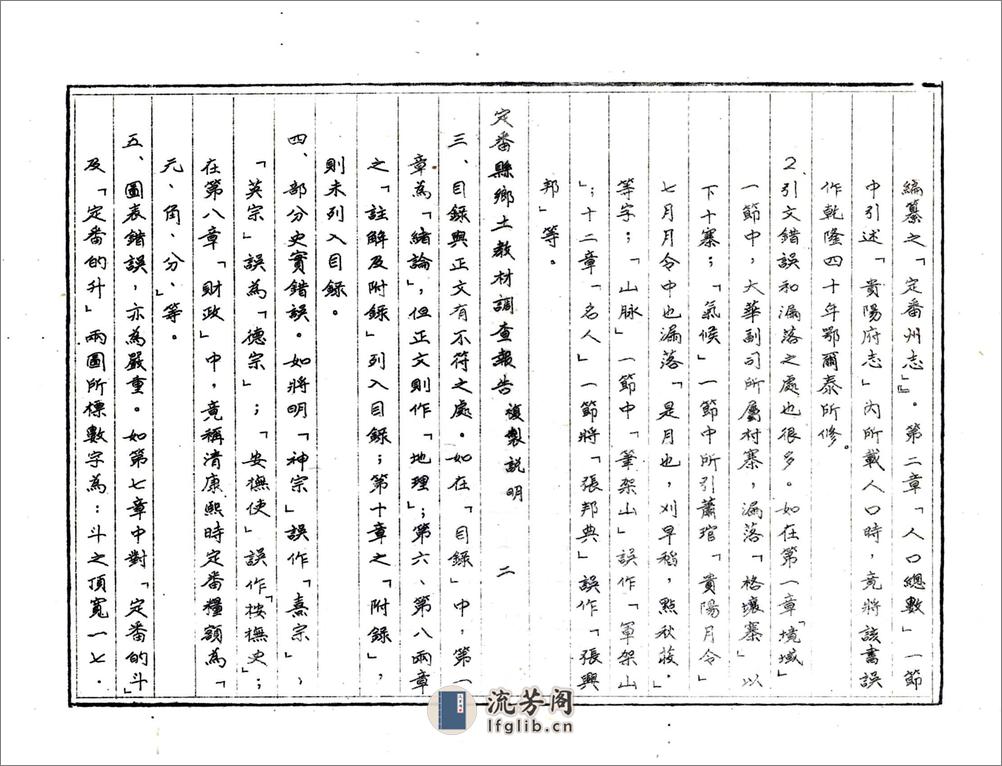 編纂之「定番州志」』。第二章「人口總數」一節
中引述「貴陽府志」內所載人口時，竟將該書誤
作乾隆四十年鄂爾泰所修。
2、引文錯誤和漏落之處也很多。如在第一章「境域」
一節中，大華副司所屬村寨，漏落「格壤寨」以
下十寨；「氣候」一節中所引蕭琯「貴陽月令」
七月月令中也漏落「是月也，刈早稻，點秋菠。」
等字；「山脈」一節中「筆架山」誤作「軍架山
」；十二章「名人」一節將「張邦典」誤作「張興
邦」等。
定番縣鄉土教材調查報告 複製說明 二
三、目錄與正文有不符之處。如在「目錄」中，第一
章為「緒論」，但正文則作「地理」；第六、第八兩章
之「註解及附錄」列入目錄；第十章之「附錄」，
則未列入目錄。
四、部分史實錯誤。如將明「神宗」誤作「熹宗」，
「英宗」誤為「德宗」；「安撫使」誤作「按撫史」；
在第八章「財政」中，竟稱清康熙時定番糧額為「
元、角、分」等。
五、圖表錯誤，亦為嚴重。如第七章中對「定番的斗」
及「定番的升」兩圖所標數字為：斗之頂寬一七．
流芳阁
lfglib.cn